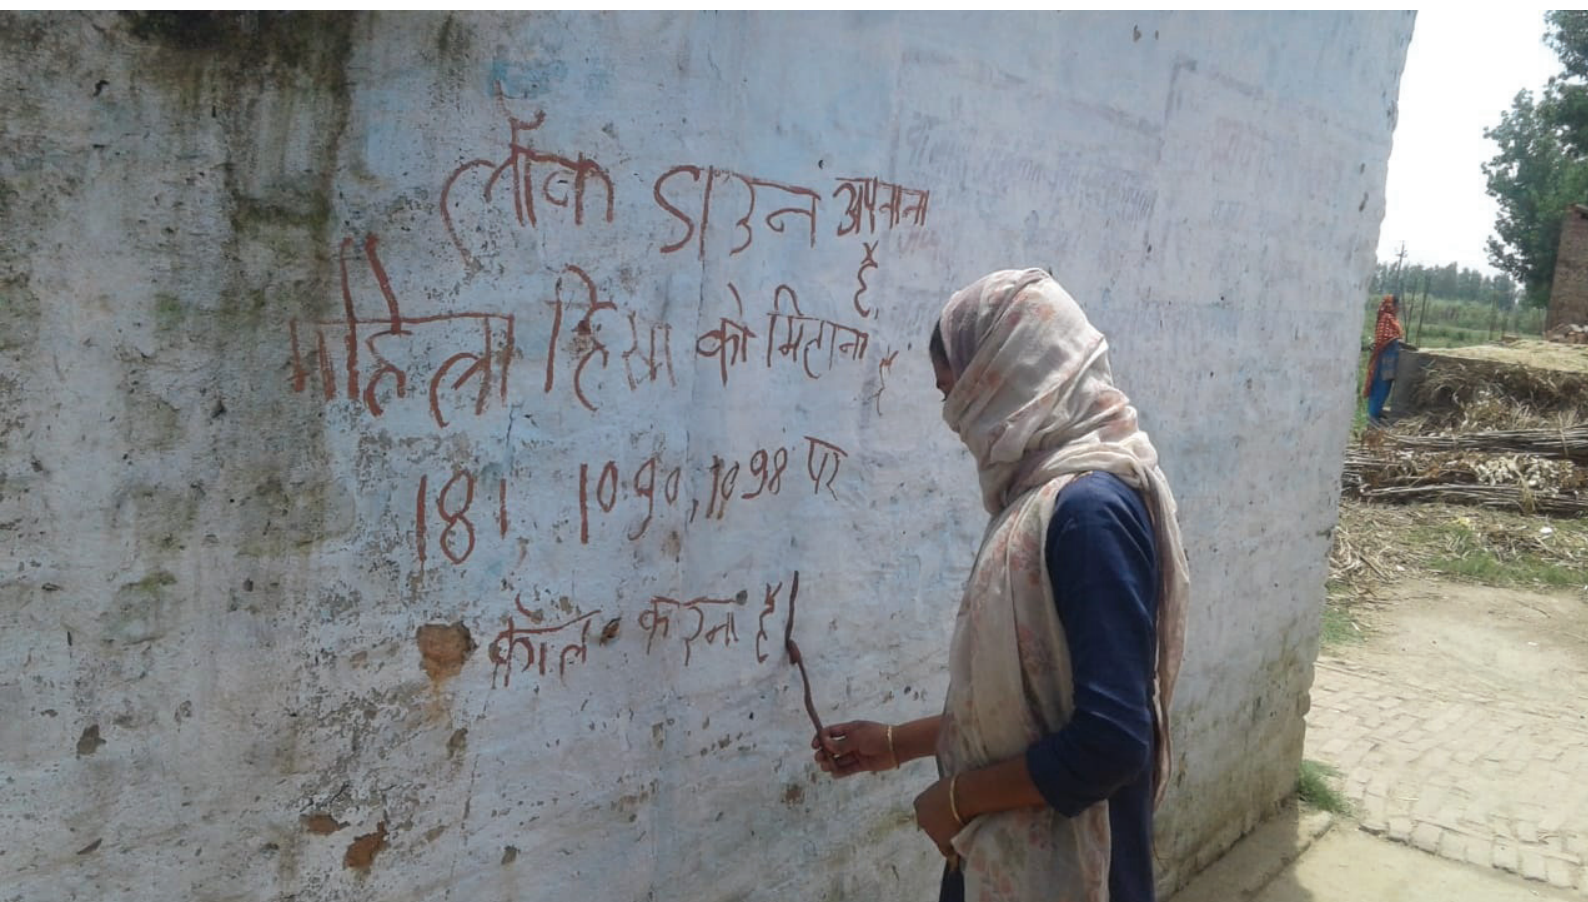 लॉक डाउन अपनाना
है
महिला हिंसा को मिटाना
है
181 1090, 1098 पर
कॉल करना है